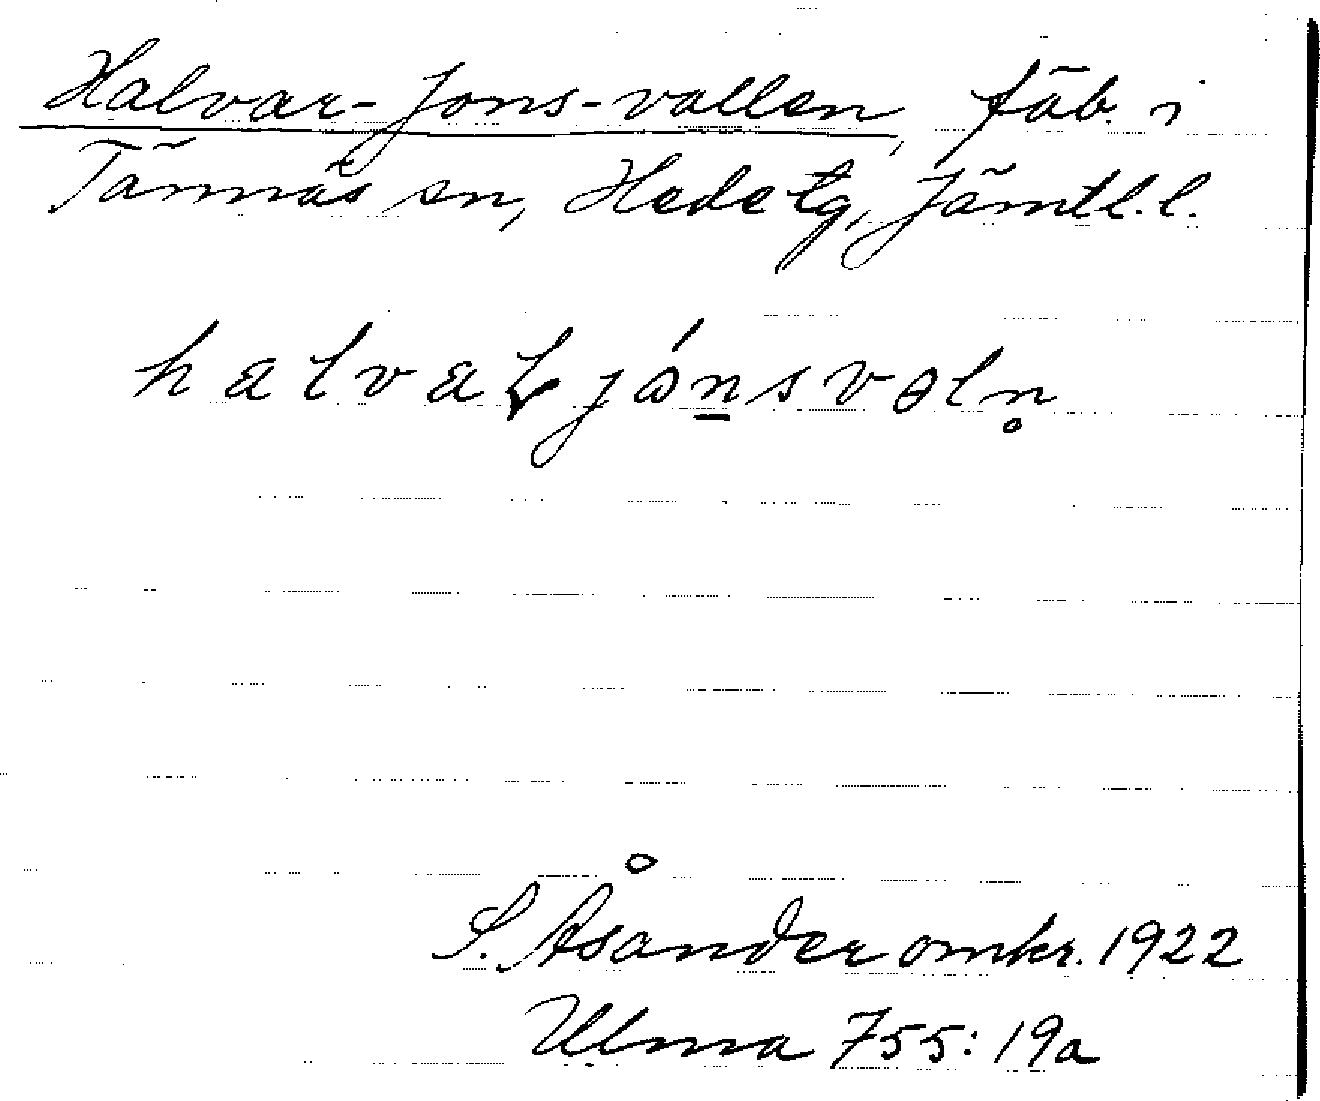 Halvar-Jons-vallen, fäb. i
Tännäs sn, Hede tg, Jämtl. l.
S. Åsander omkr. 1922
Ulma 755: 19a